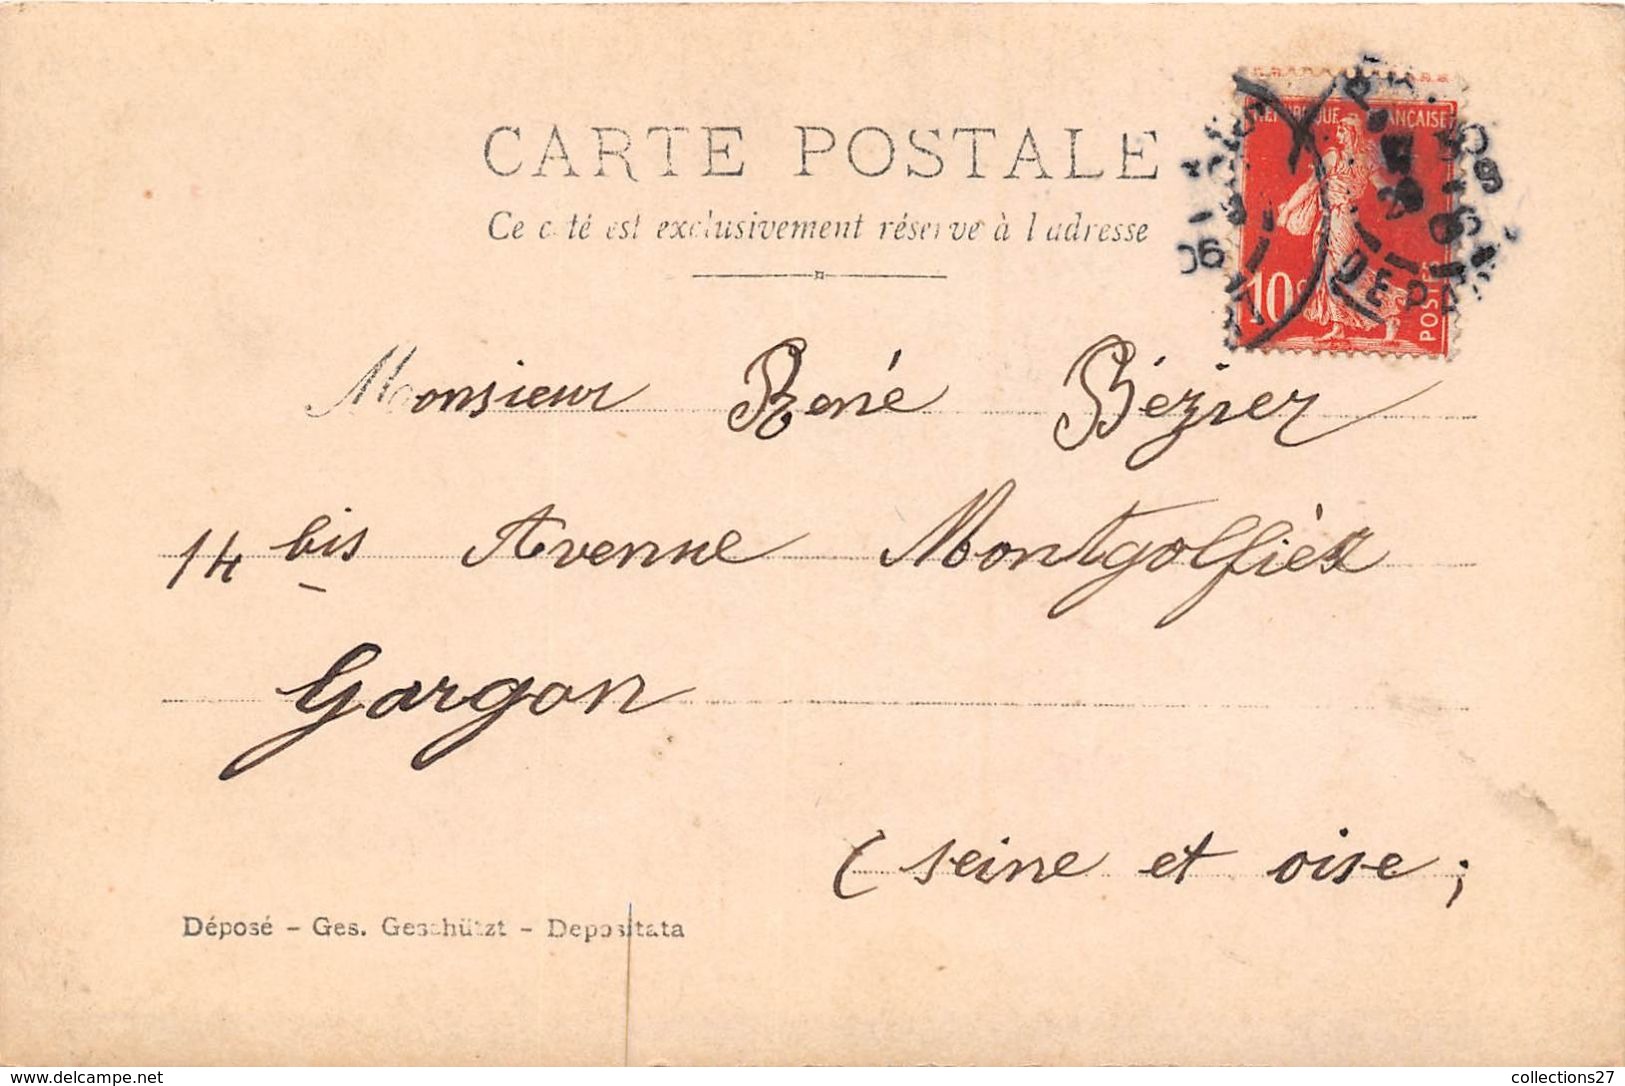 CARTE POSTALE
Ce côté est exclusivement réservé à l'adresse
RÉPUBLIQUE FRANÇAISE
10c
POSTES
DEPART
06
Monsieur René Bézier
14 bis Avenue Montgolfier
Gargan
(seine et oise;
Déposé - Ges. Geschützt - Depositata
delcampe.net
collections27